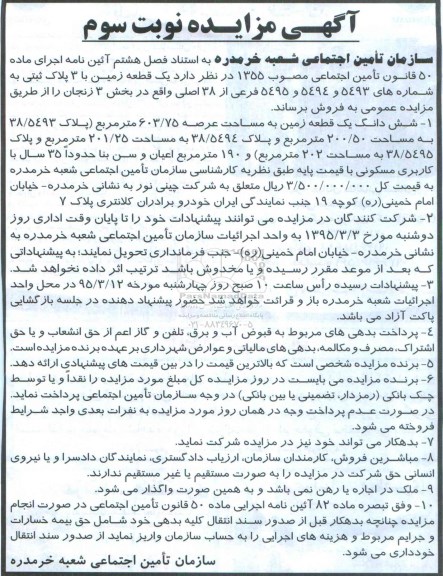 آگهی مزایده نوبت سوم
سازمان تأمین اجتماعی شعبه خرمدره به استناد فصل هشتم آئین نامه اجرای ماده
۵۰ قانون تأمین اجتماعی مصوب ۱۳۵۵ در نظر دارد یک قطعه زمین با ۳ پلاک ثبتی به
شماره های ۵۴۹۳ و ۵۴۹۴ و ۵۴۹۵ فرعی از ۳۸ اصلی واقع در بخش ۳ زنجان را از طریق
مزایده عمومی به فروش برساند.
۱- شش دانگ یک قطعه زمین به مساحت عرصه ۶۰۳/۷۵ مترمربع (پلاک ۳۸/۵۴۹۳
به مساحت ۲۰۰/۵۰ مترمربع و پلاک ۳۸/۵۴۹۴ به مساحت ۲۰۱/۲۵ مترمربع و پلاک
۳۸/۵۴۹۵ به مساحت ۲۰۲ مترمربع) و ۱۹۰ مترمربع اعیان و سن بنا حدوداً ۳۵ سال با
کاربری مسکونی با قیمت پایه طبق نظریه کارشناسی سازمان تأمین اجتماعی شعبه خرمدره
به قیمت کل ۳/۵۰۰/۰۰۰/۰۰۰ ریال متعلق به شرکت چینی نور به نشانی خرمدره- خیابان
امام خمینی(ره) کوچه ۱۹ جنب نمایندگی ایران خودرو برادران کلانتری پلاک ۷
۲- شرکت کنندگان در مزایده می توانند پیشنهادات خود را تا پایان وقت اداری روز
دوشنبه مورخ ۱۳۹۵/۳/۳ به واحد اجرائیات سازمان تأمین اجتماعی شعبه خرمدره به
نشانی خرمدره- خیابان امام خمینی(ره)- جنب فرمانداری تحویل نمایند؛ به پیشنهاداتی
که بعد از موعد مقرر رسیده و یا مخدوش باشد ترتیب اثر داده نخواهد شد.
۳- پیشنهادات رسیده رأس ساعت ۱۰ صبح روز چهارشنبه مورخه ۹۵/۳/۱۲ در محل واحد
اجرائیات شعبه خرمدره باز و قرائت خواهد شد حضور پیشنهاد دهنده در جلسه بازگشایی
پاکت آزاد می باشد.
۴- پرداخت بدهی های مربوط به قبوض آب و برق، تلفن و گاز اعم از حق انشعاب و یا حق
اشتراک، مصرف و مکالمه، بدهی های مالیاتی و عوارض شهرداری بر عهده برنده مزایده است.
۵- برنده مزایده شخصی است که بالاترین قیمت را در بین قیمت های پیشنهادی ارائه دهد.
۶- برنده مزایده می بایست در روز مزایده کل مبلغ مورد مزایده را نقداً و یا توسط
چک بانکی (رمزدار، تضمینی یا بین بانکی) در وجه سازمان تأمین اجتماعی پرداخت نماید.
در صورت عدم پرداخت وجه در همان روز مورد مزایده به نفرات بعدی واجد شرایط
فروخته می شود.
۷- بدهکار می تواند خود نیز در مزایده شرکت نماید.
۸- مباشرین فروش، کارمندان سازمان، ارزیاب دادگستری، نمایندگان دادسرا و یا نیروی
انسانی حق شرکت در مزایده را به صورت مستقیم یا غیر مستقیم ندارند.
۹- ملک در اجاره یا رهن نمی باشد و به همین صورت واگذار می شود.
۱۰- وفق تبصره ماده ۸۲ آئین نامه اجرایی ماده ۵۰ قانون تأمین اجتماعی در صورت انجام
مزایده چنانچه بدهکار قبل از صدور سند انتقال کلیه بدهی خود شامل حق بیمه خسارات
و جرایم مربوط و هزینه های اجرایی را به حساب سازمان واریز نماید از صدور سند انتقال
خودداری می شود.
سازمان تأمین اجتماعی شعبه خرمدره